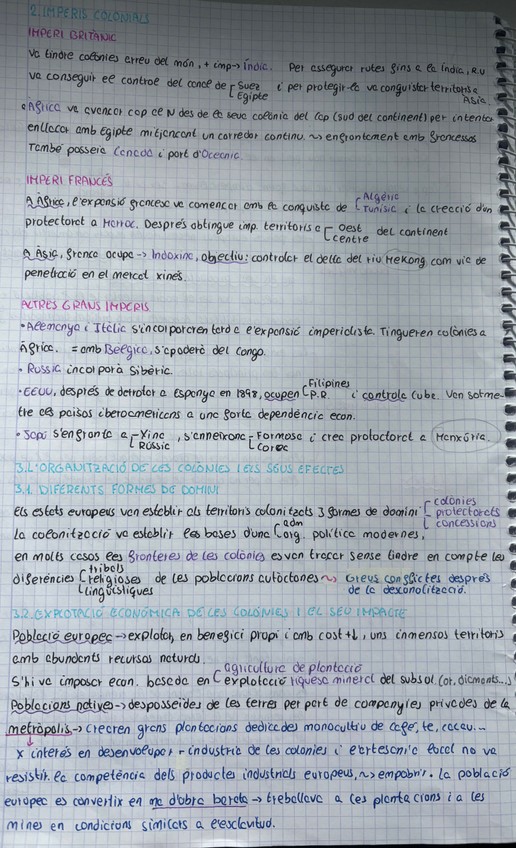 2. IMPERIS COLONIALS
IMPERI BRITÀNIC
Va tindre colònies arreu del món, + imp → Índic. Per assegurar rutes fins a la Índia, R.U
va conseguir el control del canal de [Suez Egipte i per protegir-lo va conquistar territoris a Àsia.
• Àfrica va avançar cap al N des de la seua colònia del Cap (sud del continent) per intentar
enllaçar amb Egipte mitjançant un corredor continu. ~> enfrontament amb francesos
També posseïa Canadà i part d'Oceania.
IMPERI FRANCÉS
A Àfrica, l'expansió francesa va començar amb la conquista de [Algèria Tunísia i la creació d'un
protectorat a Marroc. Després obtingué imp. territoris a [Oest Centre del continent
A Àsia, frança ocupa → Indoxina, objectiu: controlar el delta del riu Mekong com via de
penetració en el mercat xinés.
ALTRES GRANS IMPERIS
• Alemanya i Itàlia s'incorporaren tard a l'expansió imperialista. Tingueren colònies a
Àfrica. = amb Bèlgica, s'apoderà del Congo.
• Rússia incorporà Sibèria.
• EEUU, després de derrotar a Espanya en 1898, ocupen [Filipines P.R. i controla Cuba. Van sotme-
tre els països iberoamericans a una forta dependència econ.
• Japó s'enfronta a [Xina Rússia, s'annexiona [Formosa Corea i crea protectorat a Manxúria.
3. L'ORGANITZACIÓ DE LES COLÒNIES I ELS SEUS EFECTES
3.1. DIFERENTS FORMES DE DOMINI
Els estats europeus van establir als territoris colonitzats 3 formes de domini [colònies protectorats concessions
La colonització va establir les bases d'una [adm org. política modernes,
en molts casos les fronteres de les colònies es van traçar sense tindre en compte les
diferències [tribals religioses lingüístiques de les poblacions autòctones ~> Greus conflictes després
de la descolonització.
3.2. EXPLOTACIÓ ECONÒMICA DE LES COLÒNIES I EL SEU IMPACTE
Població europea → explotar, en benefici propi i amb cost +↓, uns inmensos territoris
amb abundants recursos naturals.
S'hi va imposar econ. basada en [agricultura de plantació explotació riquesa mineral del subsol (or, diamants...)
Poblacions natives → desposseïdes de les terres per part de companyies privades de la
metròpolis → crearen grans plantacions dedicades monocultiu de café, te, cacau...
x interés en desenvolupar - industria de les colonies i l'artesania local no va
resistir la competència dels productes industrials europeus, ~> empobrir. La població
europea es convertix en ma d'obra barata → treballava a les plantacions i a les
mines en condicions similars a l'esclavitud.